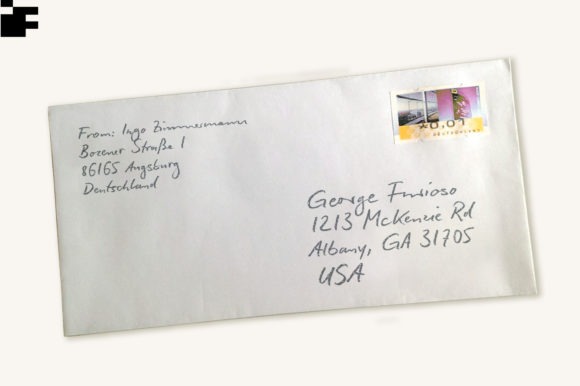 From: Ingo Zimmermann
Bozener Straße 1
86165 Augsburg
Deutschland
DEUTSCHLAND
George Furioso
1213 McKenzie Rd
Albany, GA 31705
USA